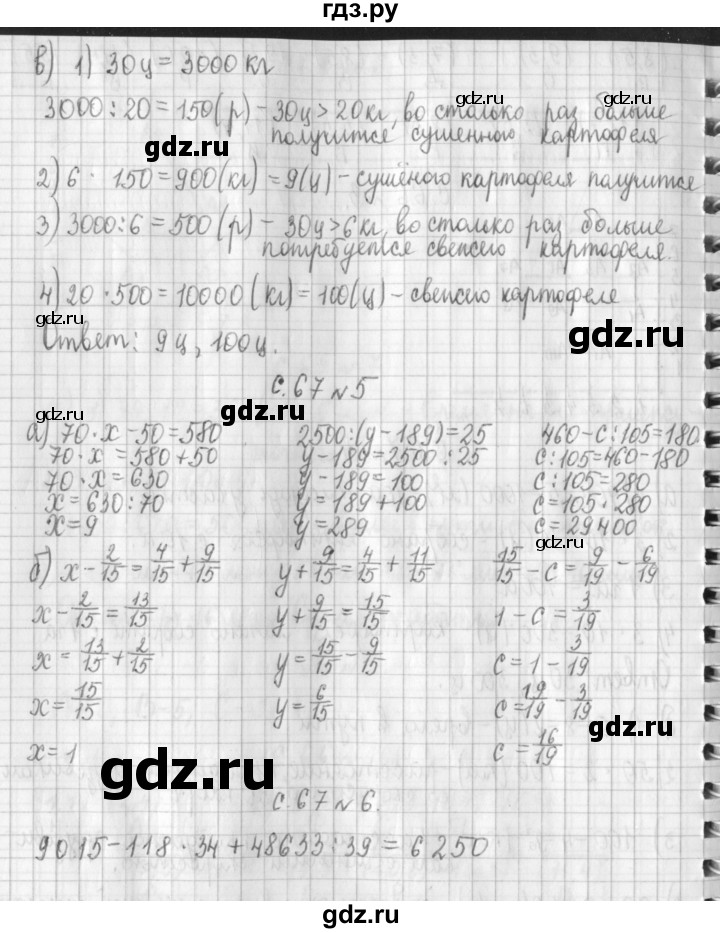 гдз.ру
в) 1) 30 ц = 3000 кг
3000 : 20 = 150 (р) – 30ц > 20кг, во столько раз больше
получится сушенного картофеля
2) 6 · 150 = 900 (кг) = 9 (ц) – сушёного картофеля получится
3) 3000 : 6 = 500 (р) – 30ц > 6 кг, во столько раз больше
потребуется свежего картофеля.
4) 20 · 500 = 10000 (кг) = 100 (ц) – свежего картофеле
Ответ: 9 ц, 100 ц.
с. 67 № 5
а) 70 · x – 50 = 580   2500 : (y – 189) = 25   460 – c : 105 = 180
70 · x = 580 + 50   y – 189 = 2500 : 25   c : 105 = 460 – 180
70 · x = 630   y – 189 = 100   c : 105 = 280
x = 630 : 70   y = 189 + 100   c = 105 · 280
x = 9   y = 289   c = 29400
б) x – 2/15 = 4/15 + 9/15   y + 9/15 = 4/15 + 11/15   15/15 – c = 9/19 – 6/19
x – 2/15 = 13/15   y + 9/15 = 15/15   1 – c = 3/19
x = 13/15 + 2/15   y = 15/15 – 9/15   c = 1 – 3/19
x = 15/15   y = 6/15   c = 19/19 – 3/19
x = 1   c = 16/19
с. 67 № 6.
9015 – 118 · 34 + 48633 : 39 = 6250
gdz.ru
gdz.ru
gdz.ru
gdz.ru
gdz.ru
gdz.ru
gdz.ru
gdz.ru
gdz.ru
gdz.ru
gdz.ru
gdz.ru